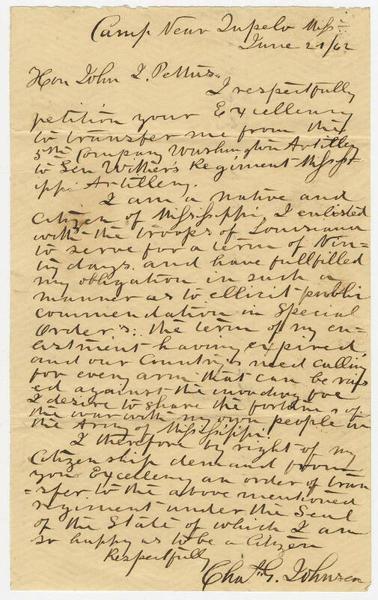 Camp Near Tupelo Miss
June 21/62
Hon John J. Pettus.
I respectfully
petition your Excellency
to transfer me from the
5th Company Washington Artillery
to Gen Withers Regiment Missi
ppi Artillery.
I am a native and
Citizen of Mississippi, I enlisted
with the troops of Louisiana
to serve for a term of Nin-
ty days. and have fullfilled
my obligation in such a
manner as to ellicit public
commendation in Special
Order's: the term of my en-
listment having expired,
and our Country's need calling
for every arm that can be rais
ed against the invading foe
I desire to share the fortunes of
the war with my own people in
the Army of Mississippi.
I therefore by right of my
Citizenship demand from
your Excellency an order of tran
-sfer to the above mentioned
regiment under the Seal
of the State of which I am
so happy as to be a Citizen
Respectfully
Chas G. Johnsen